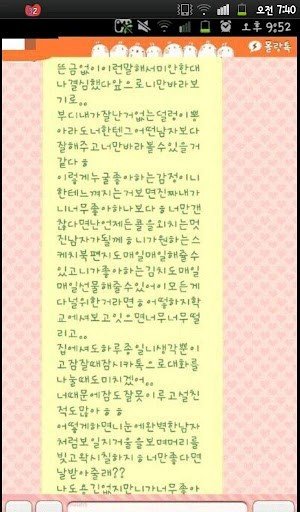 오전 7:40
오후 9:52
몰랑톡
뜬금없이이런말해서미안한대
나결심했다앞으로니만바라보
기로。。
부디내가잘난거없는덜렁이뿡
아라도너한텐그어떤남자보다
잘해주고너만바라볼수있을거
같다ㅎ
이렇게누굴좋아하는감정이니
한테느껴지는거보면진짜내가
니너무좋아하나보다ㅎ너만갠
찮다면난언제든콜을외치는멋
진남자가될께ㅎ니가원하는스
케치북편지도매일매일해줄수
있고니가좋아하는김치도매일
매일선물해줄수있어이모든게
다널위한거라면ㅎ어떨하지학
교에셔보고잇으면너무너무떨
리고。
집에셔도하루종일니생각뿐이
고잠잘때잠시카톡으로대화를
나눌때도미치겠어。。
너때문에잠도잘못이루고설친
적도많아ㅎㅎ
어떻게하면니눈에완벽한남자
처럼보일지거울을보며머리를
빗고왁시칠하지ㅎ너만좋다면
날받아줄래??
나도용긴없지만니가너무좋아